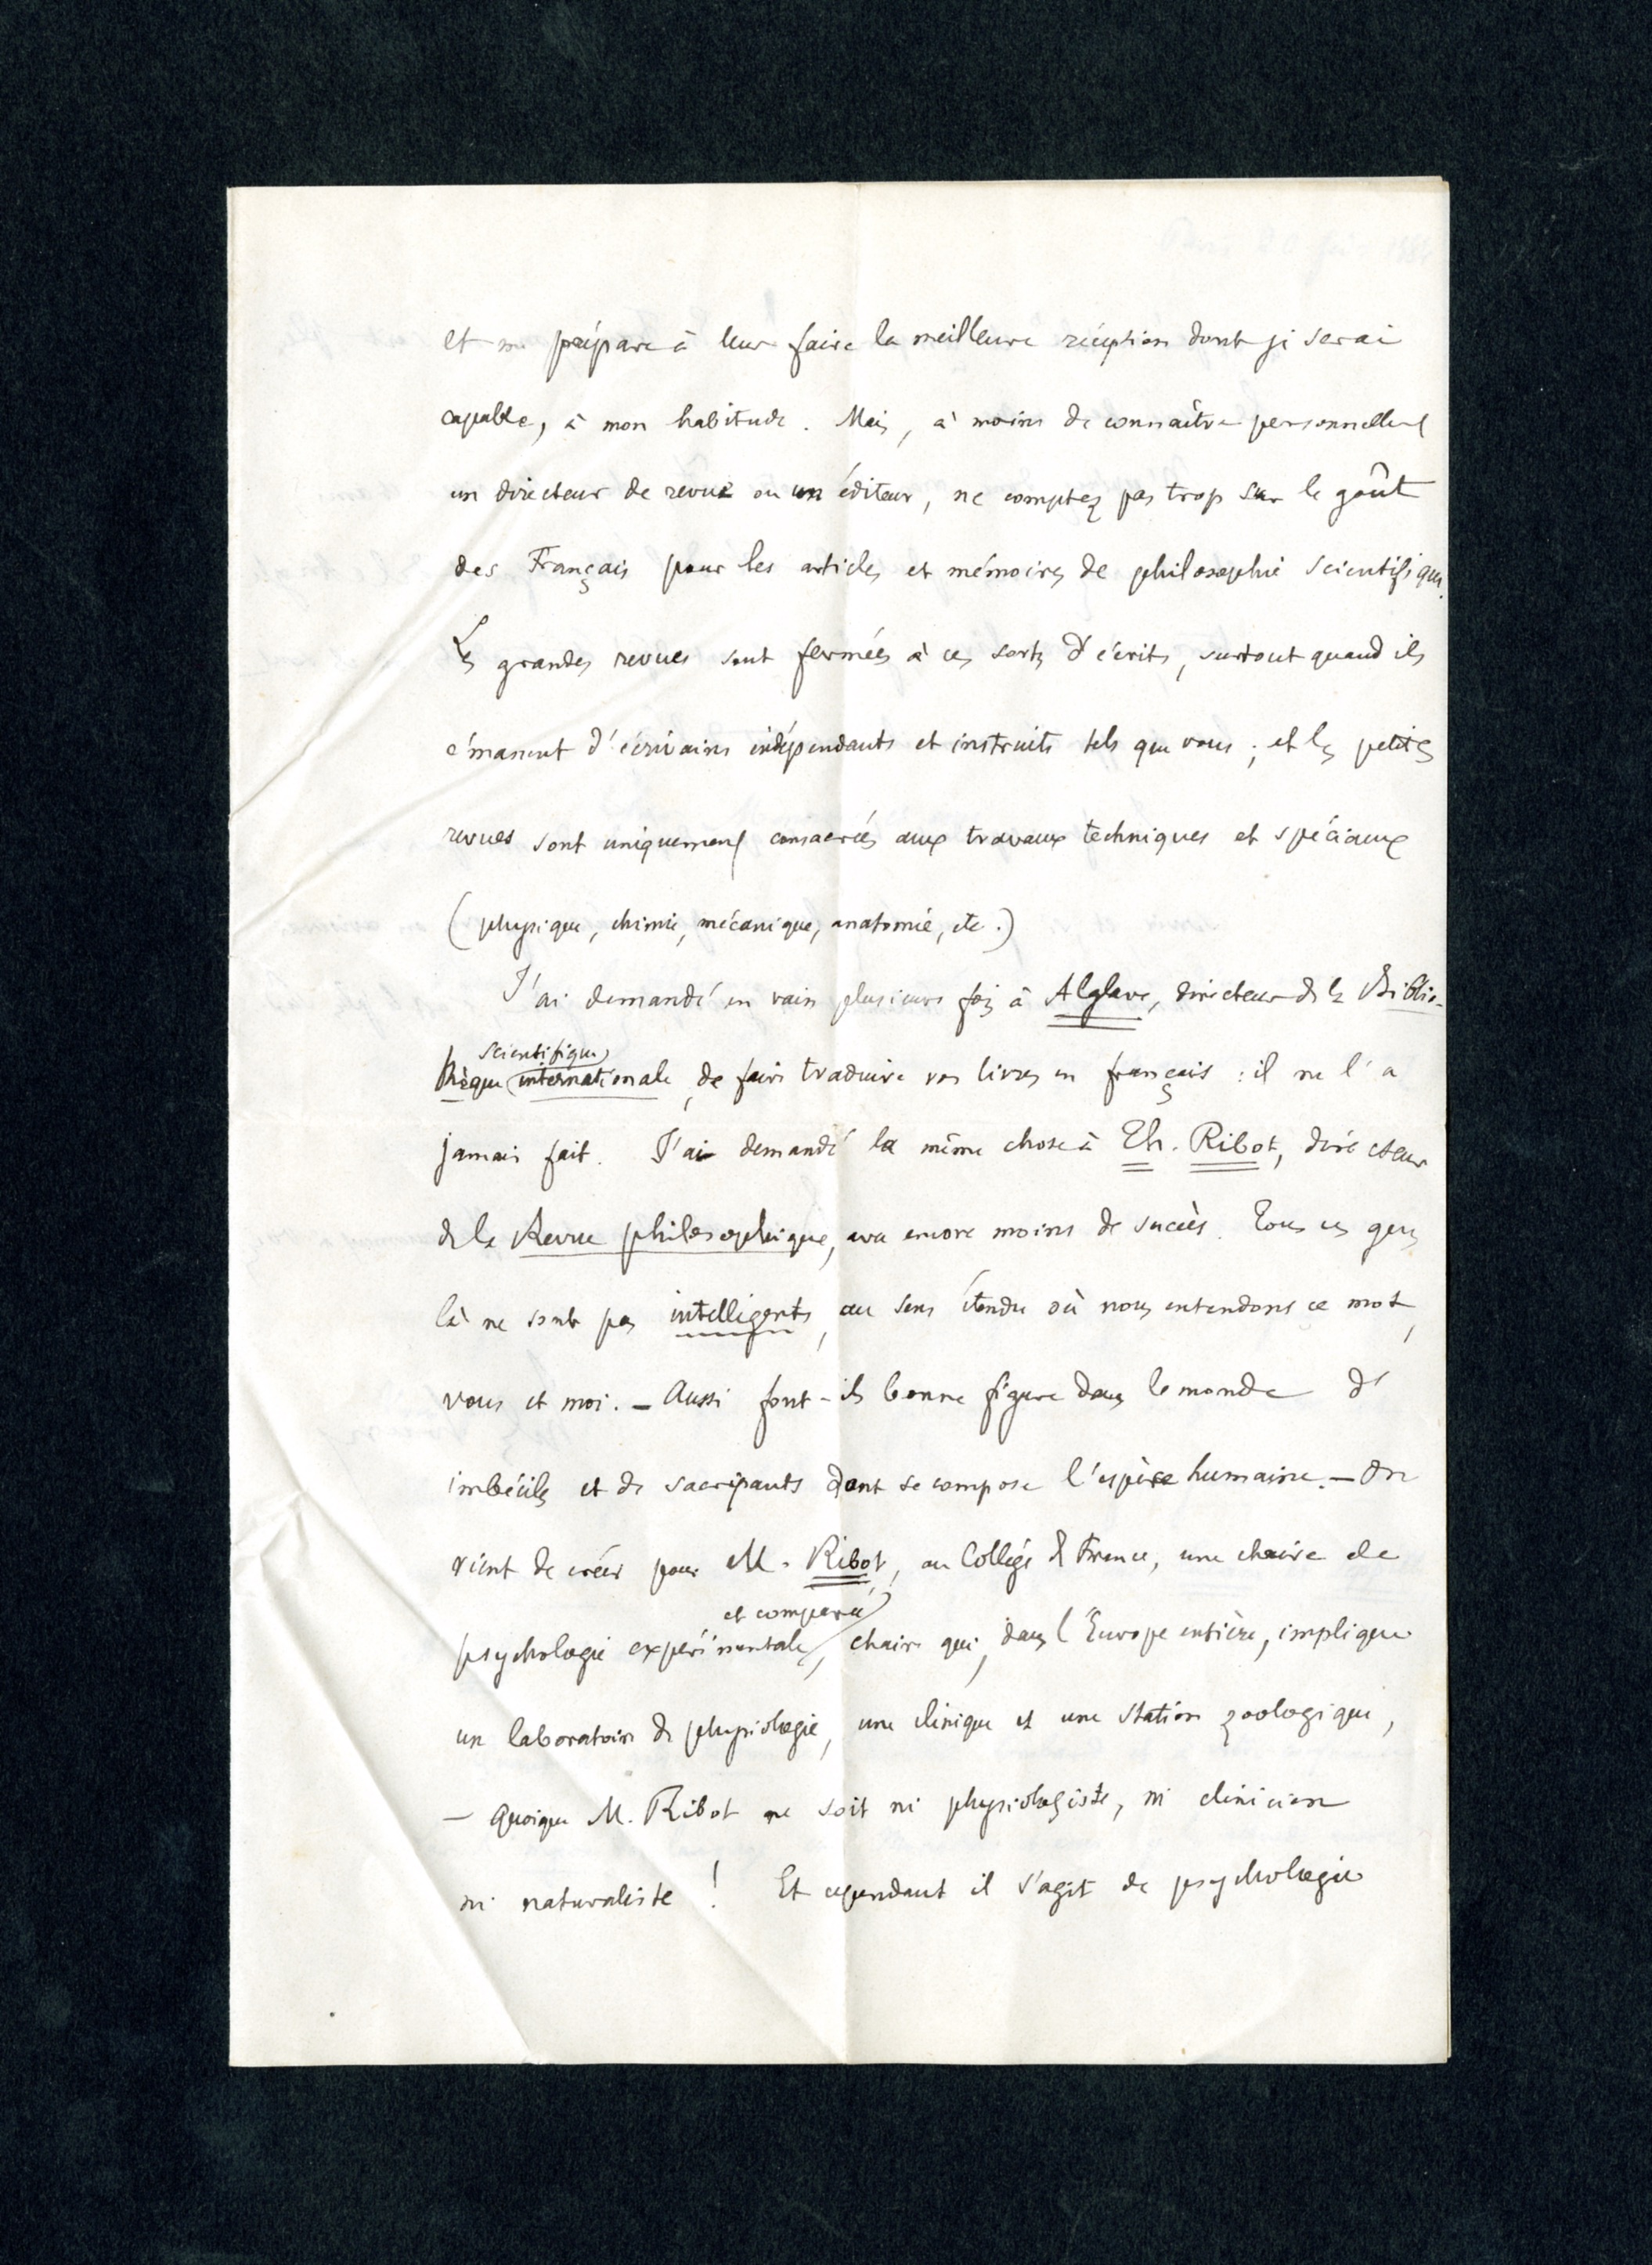 et me prépare à leur faire la meilleure réception dont je serai
capable, à mon habitude. Mais, à moins de connaître personnellement
un directeur de revue ou un éditeur, ne comptez pas trop sur le goût
des Français pour les articles et mémoires de philosophie scientifique.
Les grandes revues sont fermées à ces sortes d'écrits, surtout quand ils
émanent d'écrivains indépendants et instruits tels que vous ; et les petites
revues sont uniquement consacrées aux travaux techniques et spéciaux
(physique, chimie, mécanique, anatomie, etc.)
J'ai demandé en vain plusieurs fois à Alglave, directeur de la Biblio-
scientifique
thèque internationale, de faire traduire vos livres en français : il ne l'a
jamais fait. J'ai demandé la même chose à Th. Ribot, directeur
de la Revue philosophique, avec encore moins de succès. Tous ces gens
là ne sont pas intelligents, au sens étendu où nous entendons ce mot,
vous et moi. — Aussi font-ils bonne figure dans le monde d'
imbéciles et de sacripants dont se compose l'espèce humaine. — On
vient de créer pour M. Ribot, au Collège de France, une chaire de
et comparée
psychologie expérimentale, chaire qui, dans l'Europe entière, implique
un laboratoire de physiologie, une clinique et une station zoologique,
— quoique M. Ribot ne soit ni physiologiste, ni clinicien
ni naturaliste ! Et cependant il s'agit de psychologie